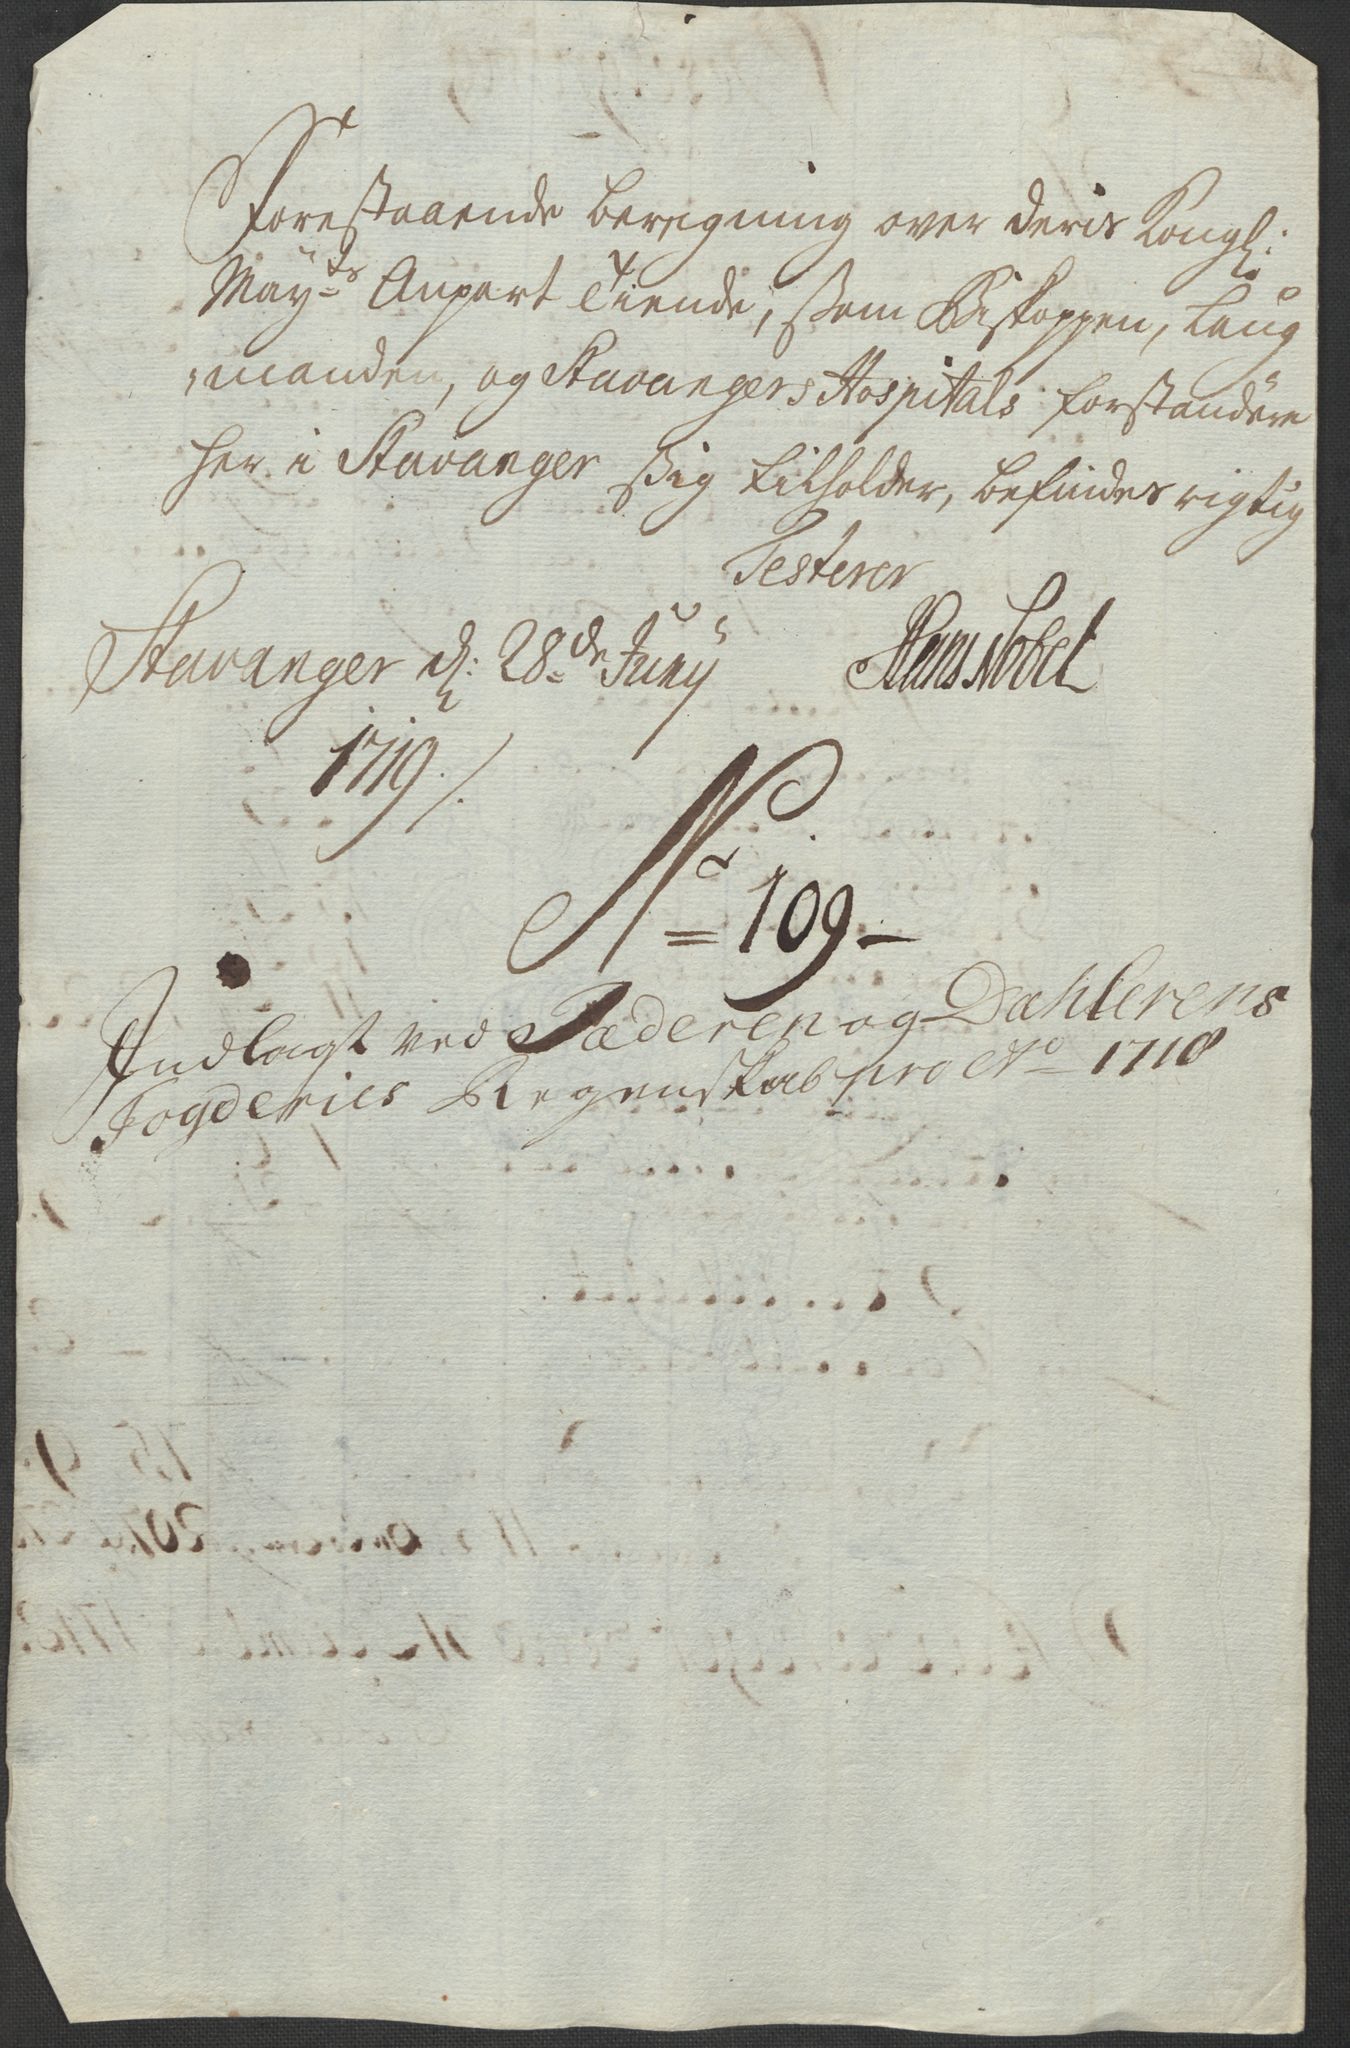 Forestaaende beregning over deris Kongl:
Mayts Anpart Tiende, som Biskoppen, Laug
manden, og Stavangers Hospitals forstandere
her i Stavanger sig tilholder, befindes rigtig
Testerer
Stavanger d: 28de Juny Hans Nobel
1719 /.
No 109
Indlagt ved Jæderen og Dahlerens
Fogderies Regenskab pro Ao 1718